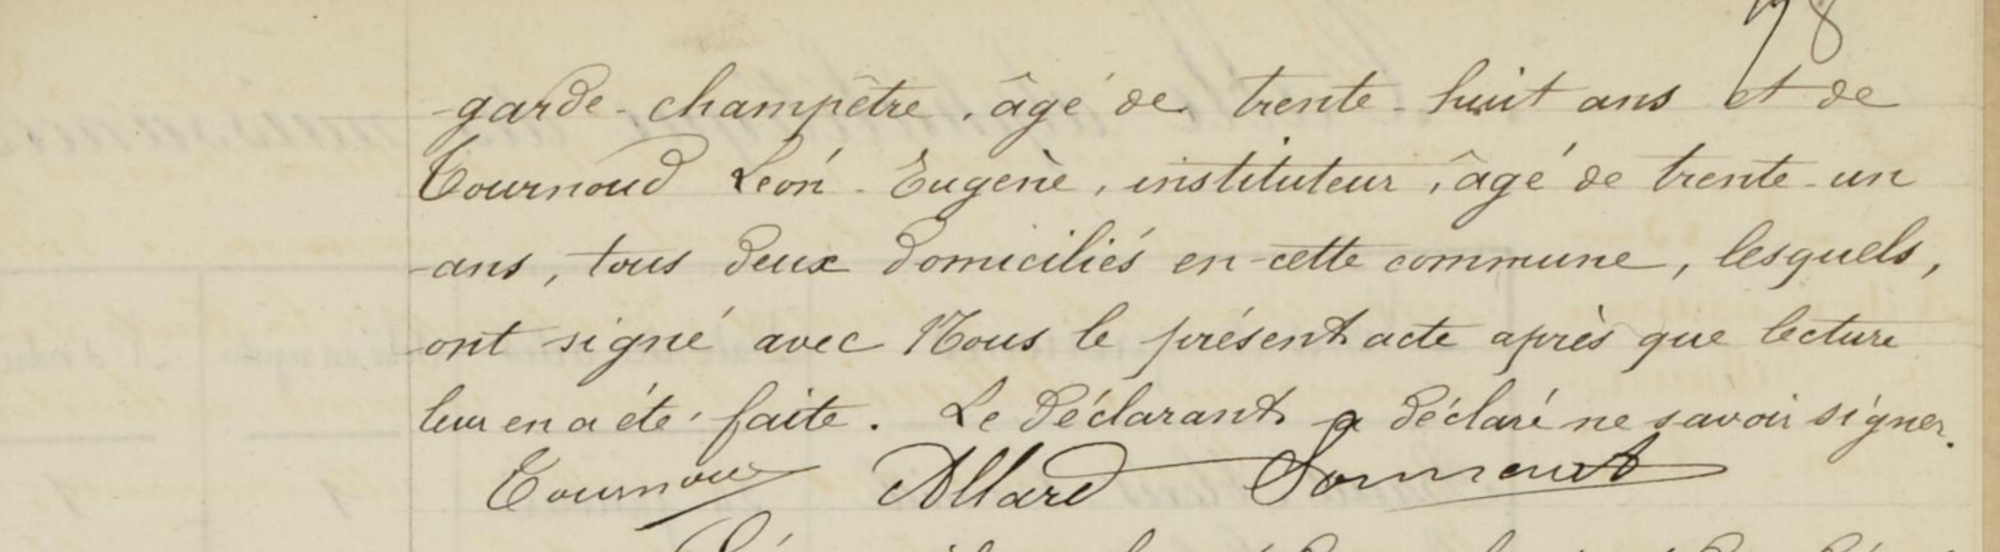 garde-champêtre, âgé de trente-huit ans et de
Tournoud Léon-Eugène, instituteur, âgé de trente-un
ans, tous deux domiciliés en cette commune, lesquels,
ont signé avec Nous le présent acte après que lecture
leur en a été faite. Le déclarant a déclaré ne savoir signer.
Tournoud Allard